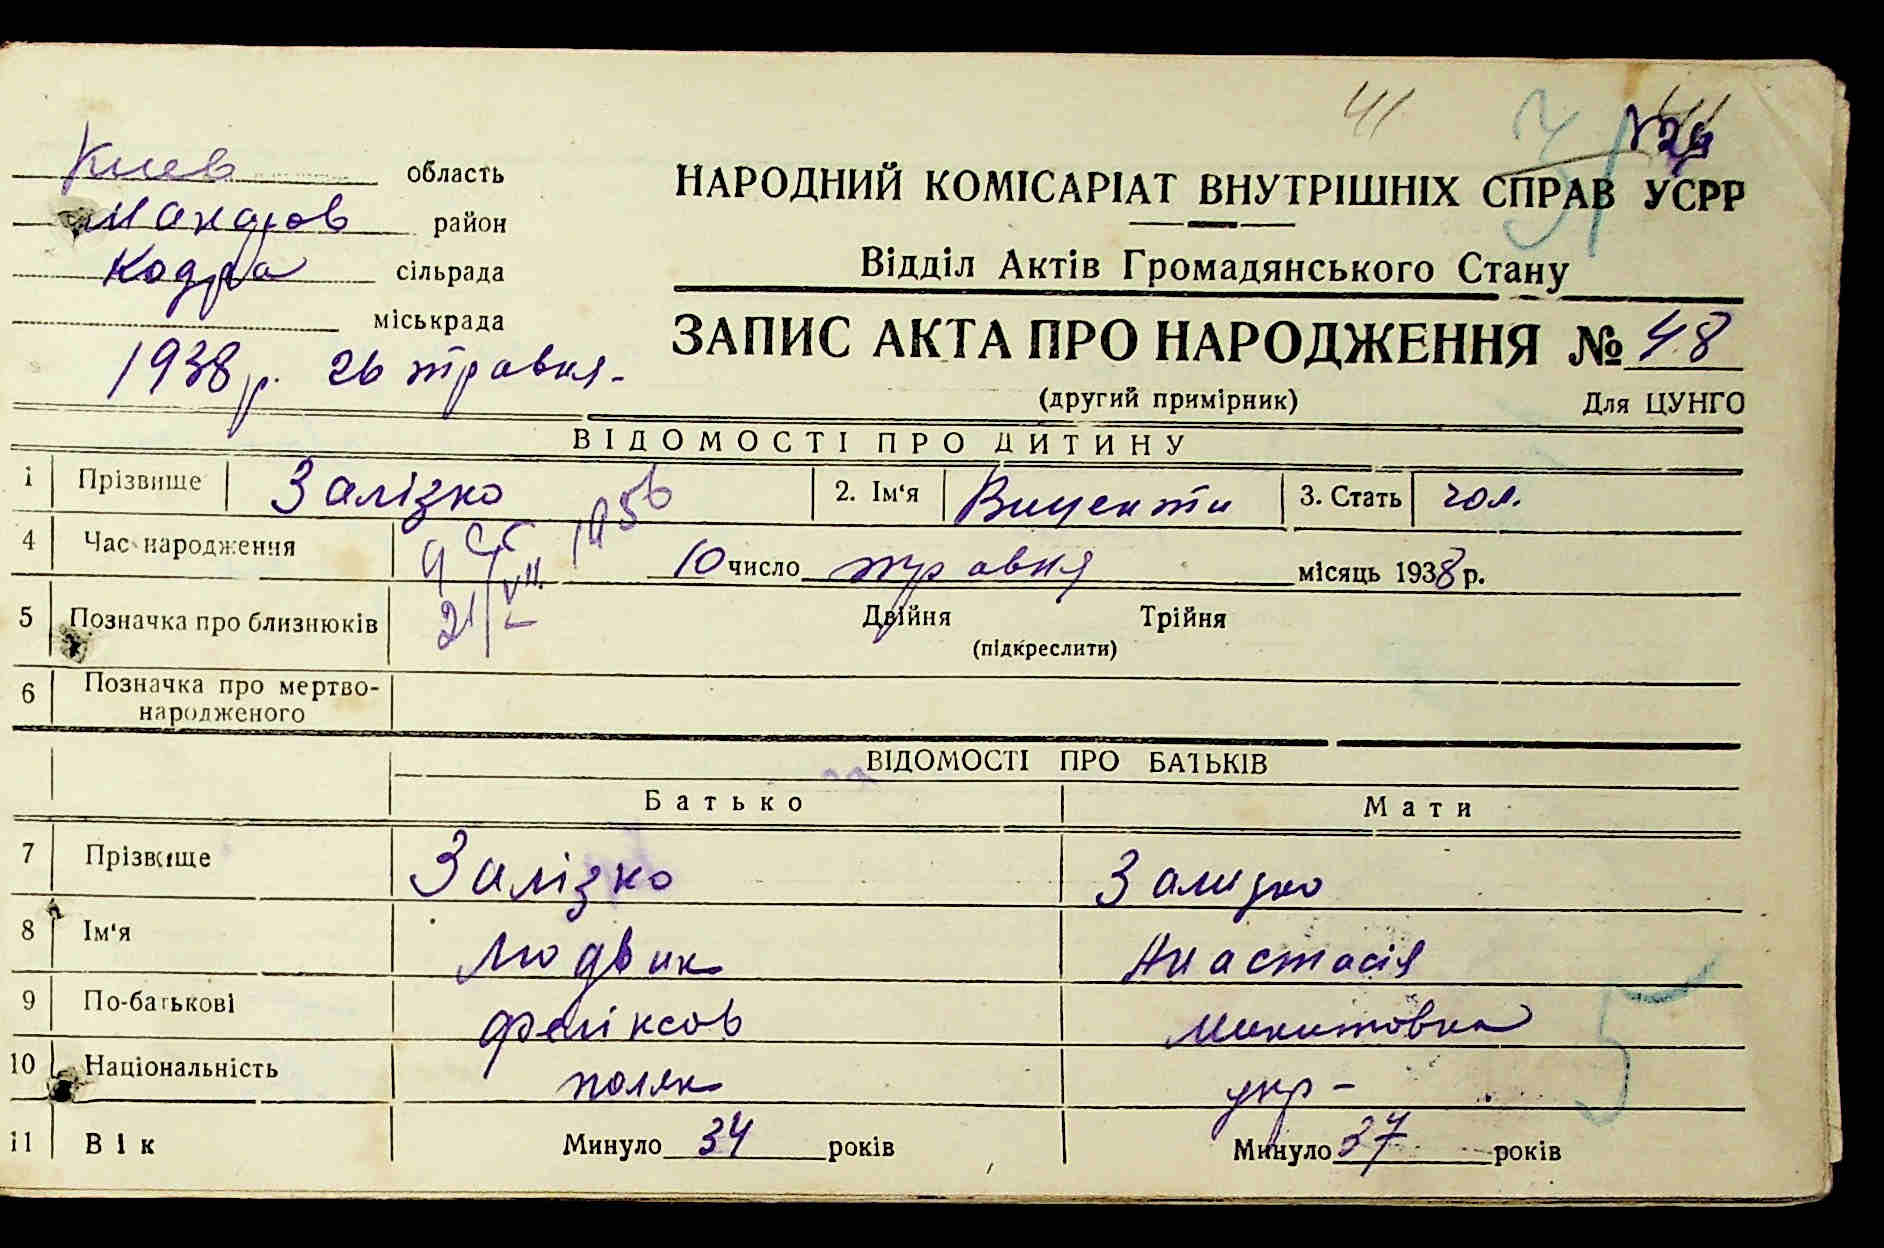 41
Киев область
Макаров район
Кодра сільрада
міськрада
1938 р. 26 травня.
НАРОДНИЙ КОМІСАРІАТ ВНУТРІШНІХ СПРАВ УСРР
Відділ Актів Громадянського Стану
ЗАПИС АКТА ПРО НАРОДЖЕННЯ № 48
(другий примірник) Для ЦУНГО
ВІДОМОСТІ ПРО ДИТИНУ
1 Прізвище Залізко 2. Ім'я Вицентий 3. Стать чол.
4 Час народження 10 число травня місяць 1938 р.
5 Позначка про близнюків Двійня Трійня
(підкреслити)
6 Позначка про мертво-
народженого
ВІДОМОСТІ ПРО БАТЬКІВ
Батько Мати
7 Прізвище Залізко Зализко
8 Ім'я Людвик Анастасія
9 По-батькові Феліксов Микитовна
10 Національність поляк укр-
11 Вік Минуло 34 років Минуло 37 років